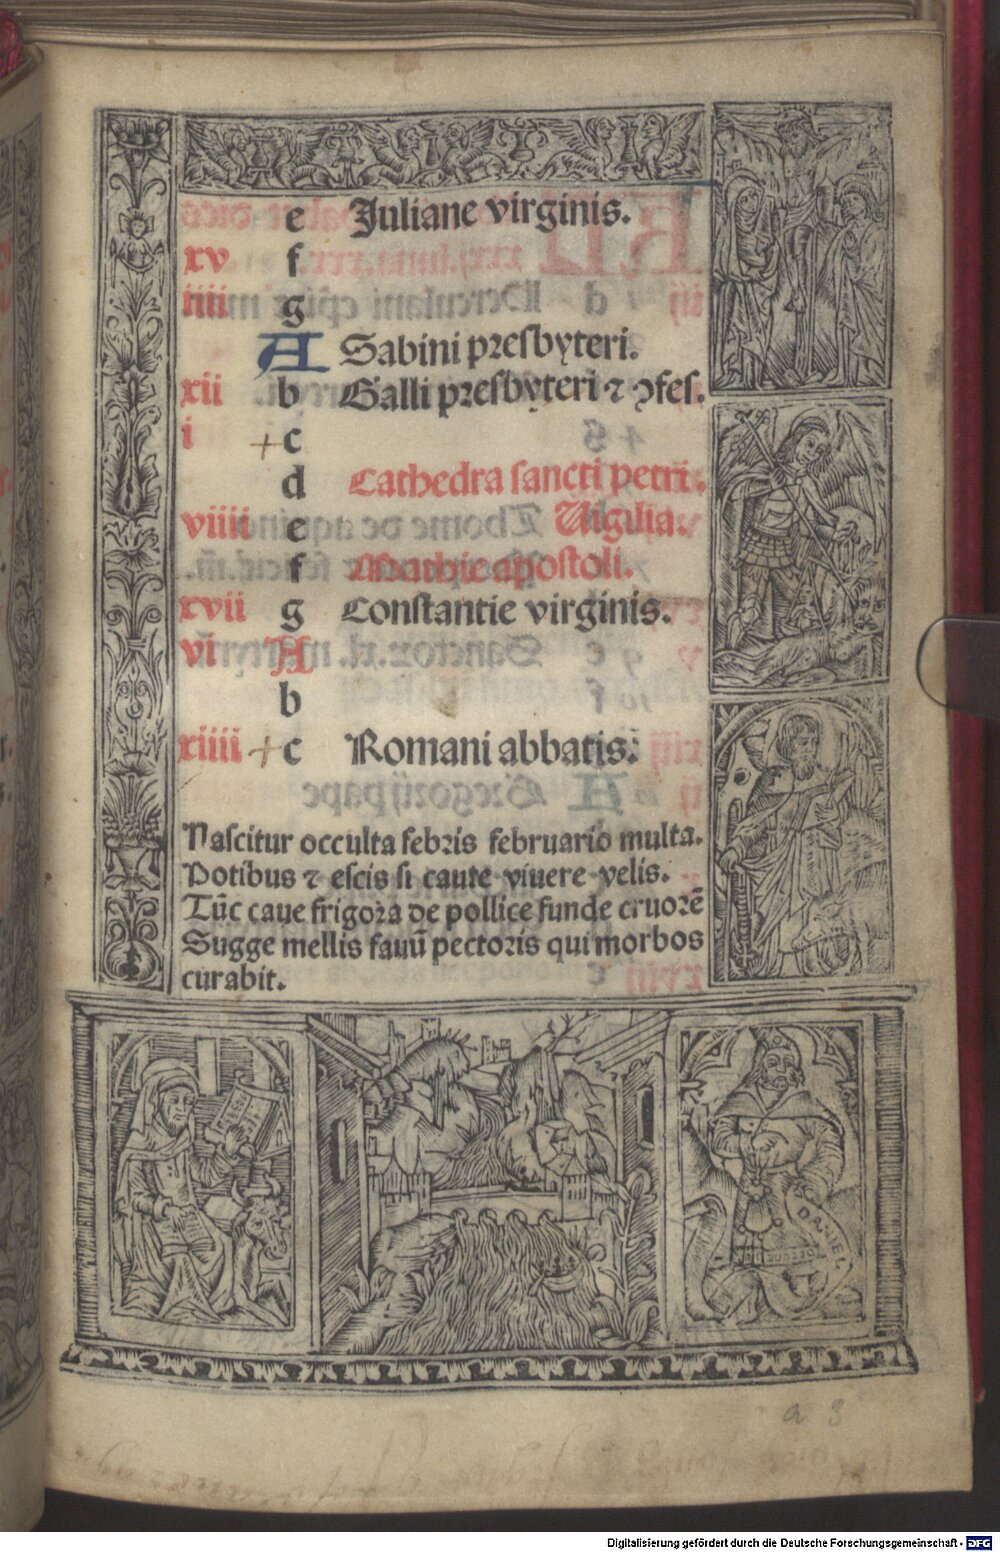 e Juliane virginis.
xv f
iiii g
A Sabini presbyteri.
xii b Galli presbyteri ⁊ ꝯfes.
i + c
d Cathedra sancti petri.
viiii e Uigilia.
f Mathie apostoli.
xvii g Constantie virginis.
vi A
b
xiiii + c Romani abbatis.
Nascitur occulta febris februario multa.
Potibus ⁊ escis si caute viuere velis.
Tūc caue frigora de pollice funde cruorē
Sugge mellis fauū pectoris qui morbos
curabit.
DANIEL
a 3
Digitalisierung gefördert durch die Deutsche Forschungsgemeinschaft - DFG